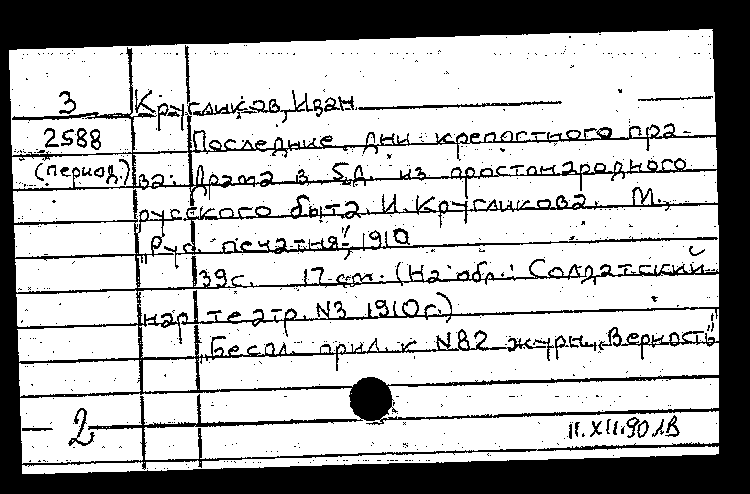 3 Кругликов, Иван
2588 Последние дни крепостного пра-
(период.) ва: Драма в 5 д. из простонародного
русского быта И. Кругликова. М.,
"Рус. печатня", 1910
39с. 17 см. (На обл.: Солдатский
нар. театр. N3 1910г.)
"Беспл. прил. к N82 журн. "Верность"
2
11.XII.90 ЛВ